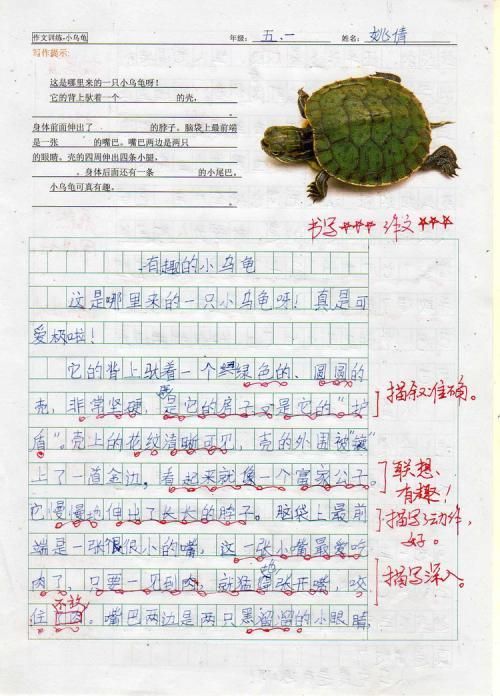 作文训练-小乌龟 年级：五.一 姓名：姚倩
写作提示：
这是哪里来的一只小乌龟呀！
它的背上驮着一个 的壳，
身体前面伸出了 的脖子。脑袋上最前端
是一张 的嘴巴。嘴巴两边是两只
的眼睛。壳的四周伸出四条小腿，
，身体后面还有一条 的小尾巴。
小乌龟可真有趣。
书写☆☆☆ 作文☆☆☆
有趣的小乌龟
这是哪里来的一只小乌龟呀！真是可
爱极啦！
它的背上驮着一个绿色的、圆圆的
壳，非常坚硬，是它的房子又是它的“护
盾”。壳上的花纹清晰可见，壳的外围被“镶”
上了一道金边，看起来就像一个富家公子。
它慢慢地伸出了长长的脖子。脑袋上最前
端是一张很很小的嘴，这一张小嘴最爱吃
肉了，只要一见到肉，就猛地张开嘴，咬
住不放。嘴巴两边是两只黑溜溜的小眼睛，
描叙准确。
联想、
有趣！
描写动作，
好。
描写深入。